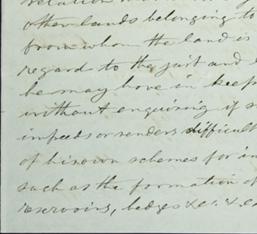 other lands belonging to
from whom the land is
regard to the just and
he may have in keep
without enquiring if
impedes or renders difficult
of his own schemes for
such as the formation of
reservoirs, hedges &c. &